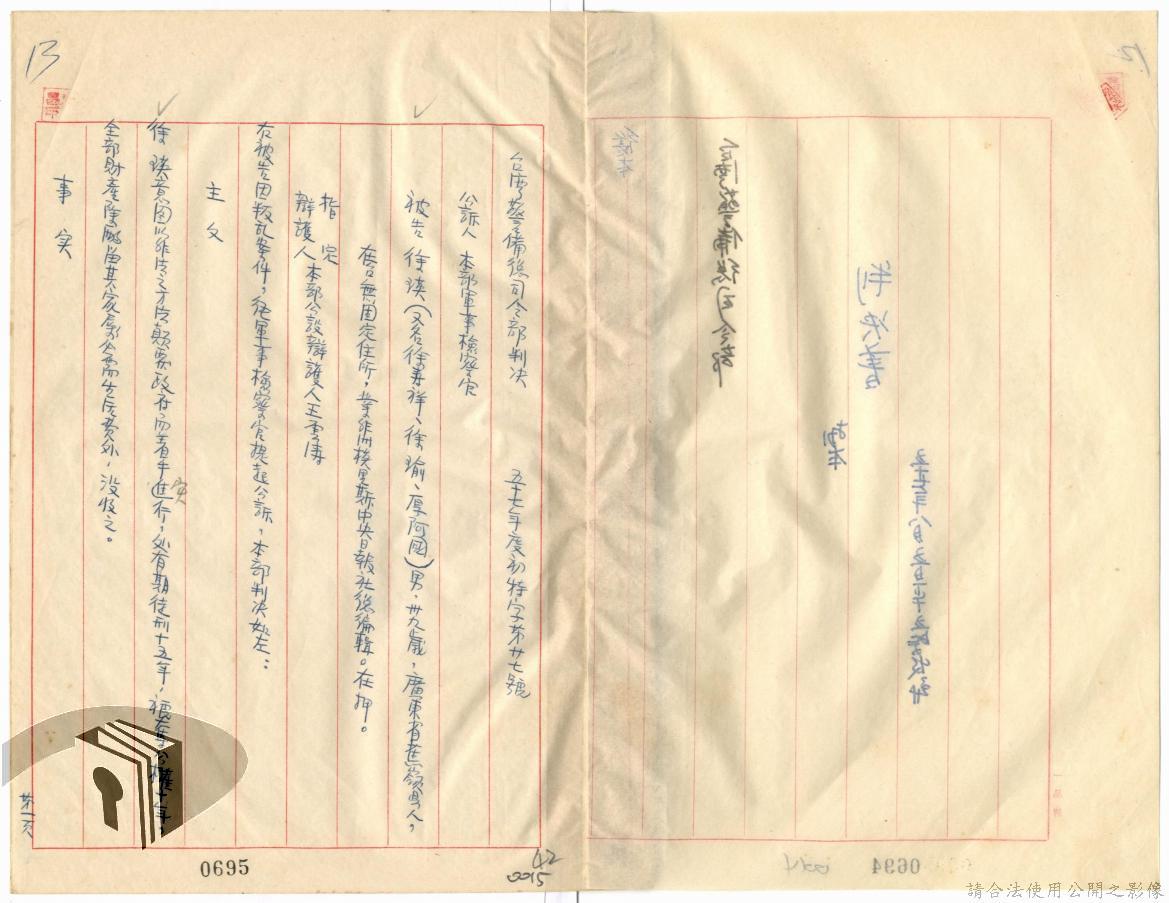 台灣警備總司令部判決 五十七年度初特字第廿七號
公訴人 本部軍事檢察官
被告 徐瑛(又名徐壽祥、徐瑜、厚阿國)男,卅九歲,廣東省蕉嶺縣人,
在台無固定住所,業非洲模里斯中央日報社總編輯。在押。
指定
辯護人 本部公設辯護人王雲濤
右被告因叛乱案件,經軍事檢察官提起公訴,本部判決如左:
主文
徐瑛意圖以非法之方法顛覆政府而着手實進行,处有期徒刑十五年,褫奪公權十年,
全部財產除酌留其家屬必需生活費外,没收之。
事实
第一頁
13
0695
42
0015
台灣警備總司令部
判决書
0694
請合法使用公開之影像